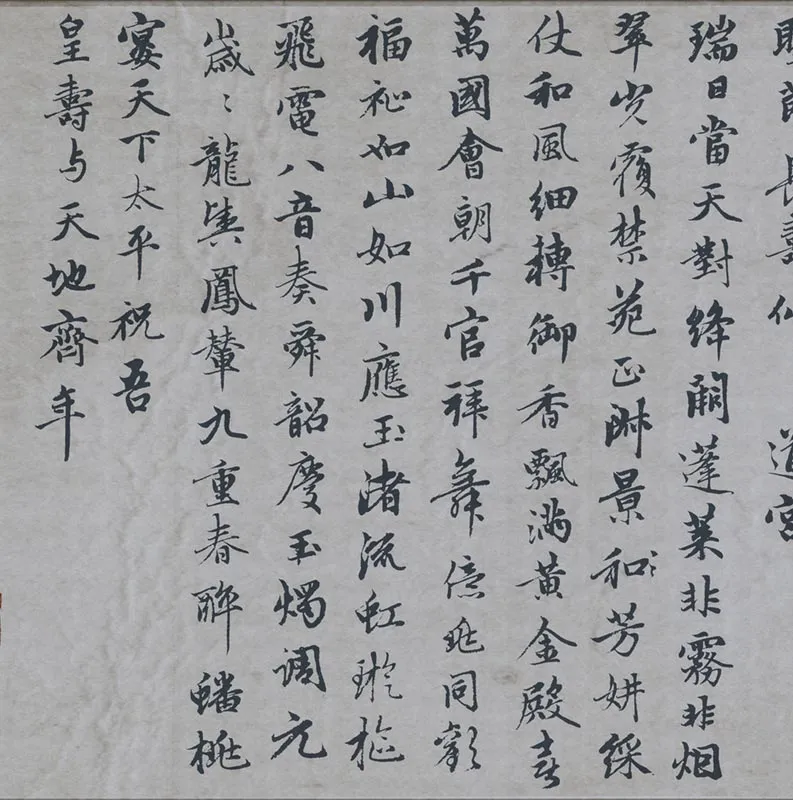 節長壽仙 道宮
瑞日當天對絳闕蓬萊非霧非烟
翠光覆禁苑正淑景和芳妍綵
仗和風細轉御香飄滿黃金殿喜
萬國會朝千官拜舞億兆同歡
福祉如山如川應玉渚流虹璇樞
飛電八音奏舜韶慶玉燭調元
歲〻龍輿鳳輦九重春醉蟠桃
宴天下太平祝吾
皇壽与天地齊年